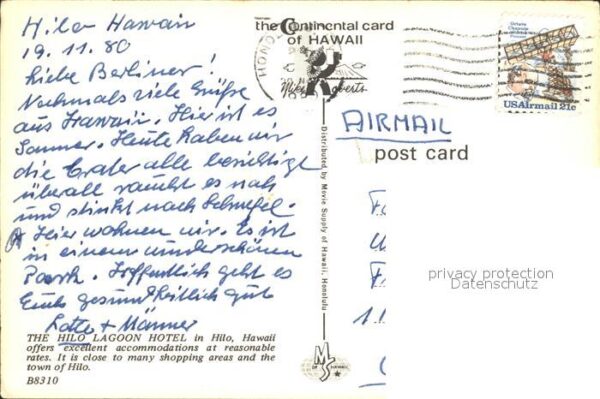 Hilo Hawaii
19.11.80
Liebe Berliner!
Nochmals viele Grüße
aus Hawaii. Hier ist es
Sommer. Heute haben wir
die Crater alle besichtigt
überall raucht es nah
und stinkt nach Schwefel.
Hier wohnen wir. Es ist
in einem wunderschönen
Park. Hoffentlich geht es
Euch gesundheitlich gut
Lotte + Männer
THE HILO LAGOON HOTEL in Hilo, Hawaii
offers excellent accommodations at reasonable
rates. It is close to many shopping areas and the
town of Hilo.
B8310
the Continental card
of HAWAII
Mike Roberts
HONO
Distributed by Movie Supply of Hawaii, Honolulu
MS
OF HAWAII
Octave
Chanute
Aviation
Pioneer
USAirmail 21c
AIRMAIL
post card
privacy protection
Datenschutz